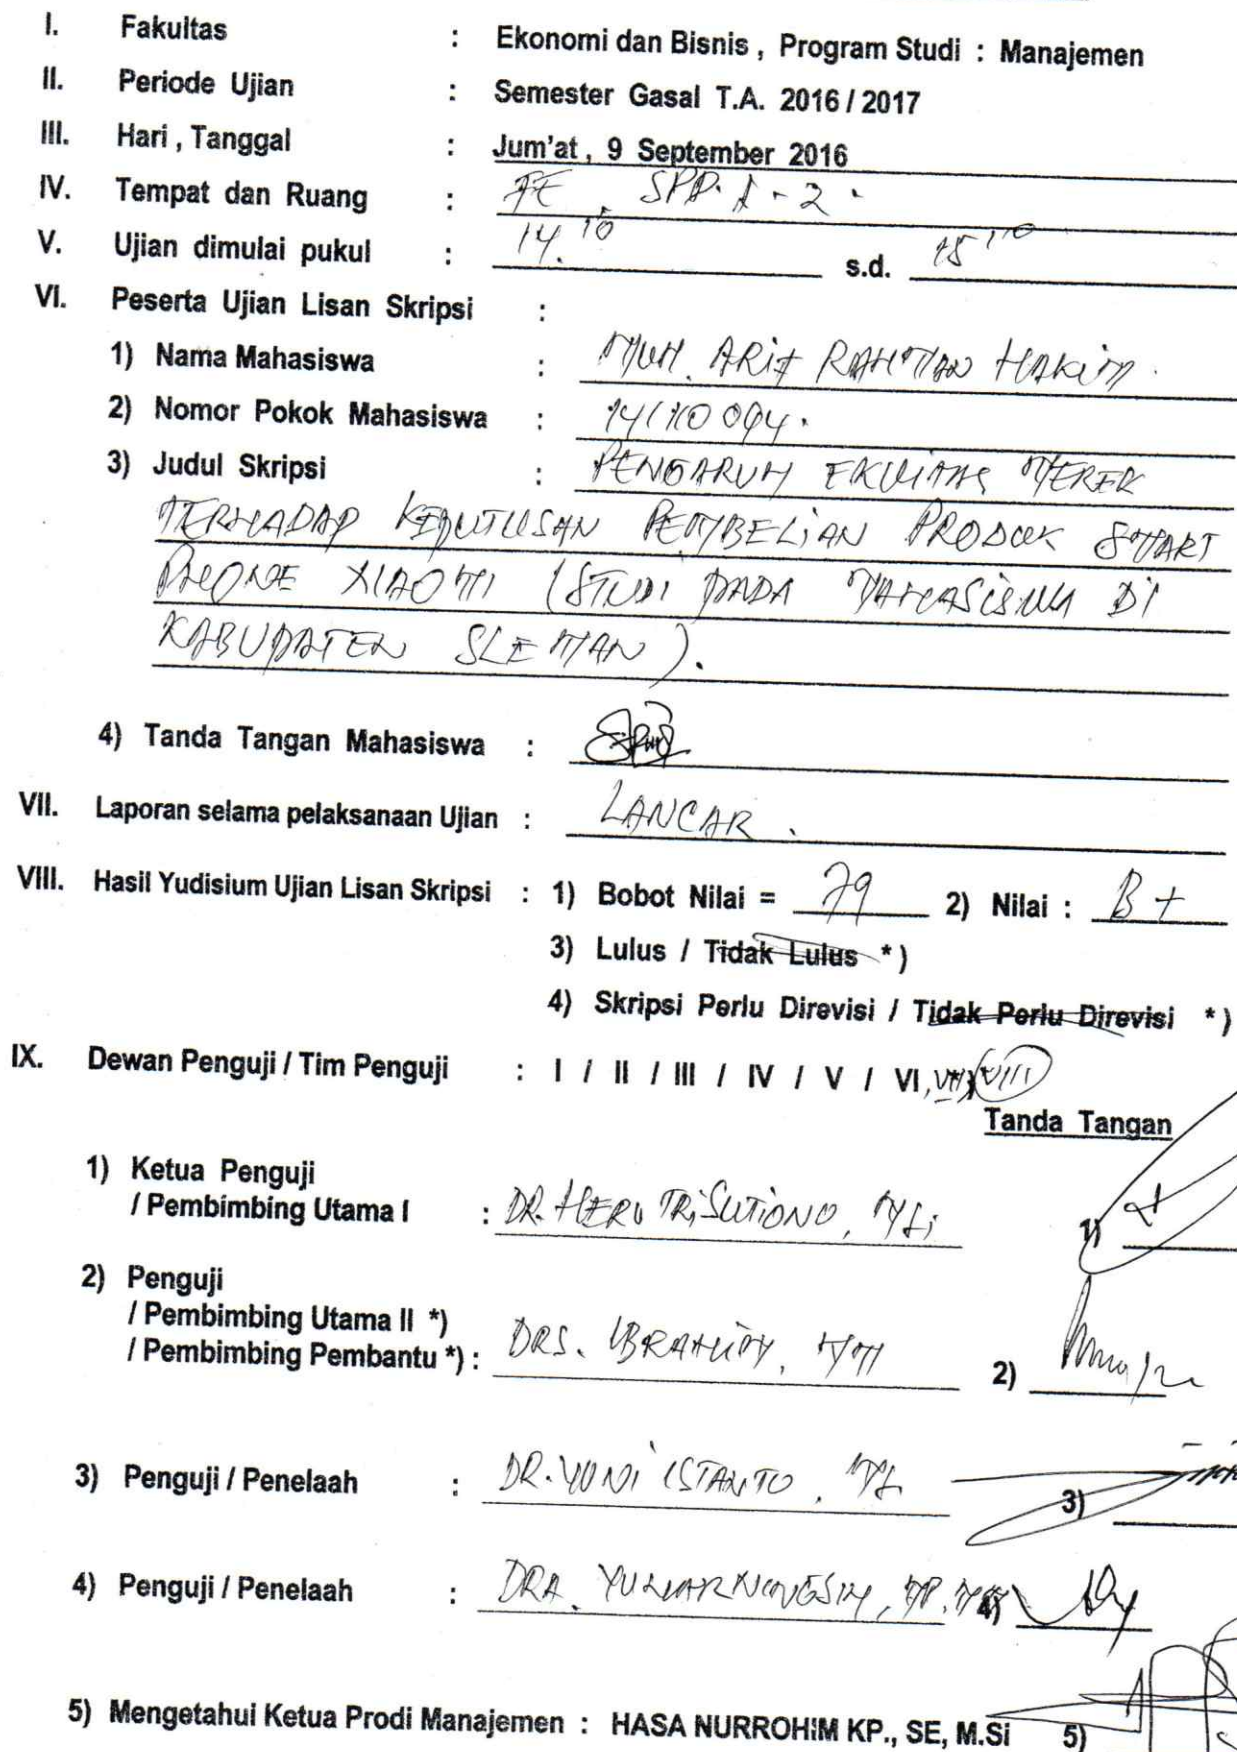 I. Fakultas : Ekonomi dan Bisnis , Program Studi : Manajemen
II. Periode Ujian : Semester Gasal T.A. 2016 / 2017
III. Hari , Tanggal : Jum'at , 9 September 2016
IV. Tempat dan Ruang : FE
V. Ujian dimulai pukul : 14.10 s.d. 15 10
VI. Peserta Ujian Lisan Skripsi :
1) Nama Mahasiswa : MUH. ARIF RAHMAN HAKIM.
2) Nomor Pokok Mahasiswa : 141110094.
3) Judul Skripsi : PENGARUH EKUITAS MEREK
TERHADAP KEPUTUSAN PEMBELIAN PRODUK SMART
PHONE XIAOMI (STUDI PADA MAHASISWA DI
KABUPATEN SLEMAN).
4) Tanda Tangan Mahasiswa :
VII. Laporan selama pelaksanaan Ujian : LANCAR .
VIII. Hasil Yudisium Ujian Lisan Skripsi : 1) Bobot Nilai = 79 2) Nilai : B +
3) Lulus / Tidak Lulus *)
4) Skripsi Perlu Direvisi / Tidak Perlu Direvisi *)
IX. Dewan Penguji / Tim Penguji : I / II / III / IV / V / VI, VII, VIII
Tanda Tangan
1) Ketua Penguji
/ Pembimbing Utama I : DR. HERU TRI SUTIONO, MSi 1)
2) Penguji
/ Pembimbing Utama II *)
/ Pembimbing Pembantu *) : DRS. IBRAHIM, MM 2)
3) Penguji / Penelaah : DR. YUNI ISTANTO, MSi 3)
4) Penguji / Penelaah : DRA. YUNIARNINGSIH, 4)
5) Mengetahui Ketua Prodi Manajemen : HASA NURROHIM KP., SE, M.Si 5)